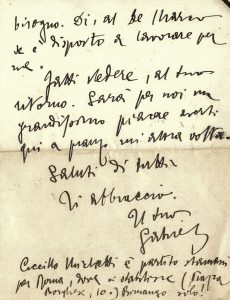 bisogno. Di, al De
è disposto a lavorare per
me.
Fatti vedere, al tuo
ritorno. Sarà per noi un
grandissimo piacere averti
qui a pranzo un'altra volta.
Saluti di tutti.
Ti abbraccio.
Il tuo
Gabriel
Ciccillo è partito stamani
per Roma, dove si stabilirà (Piazza
Borghese, 10.) Rimango solo!